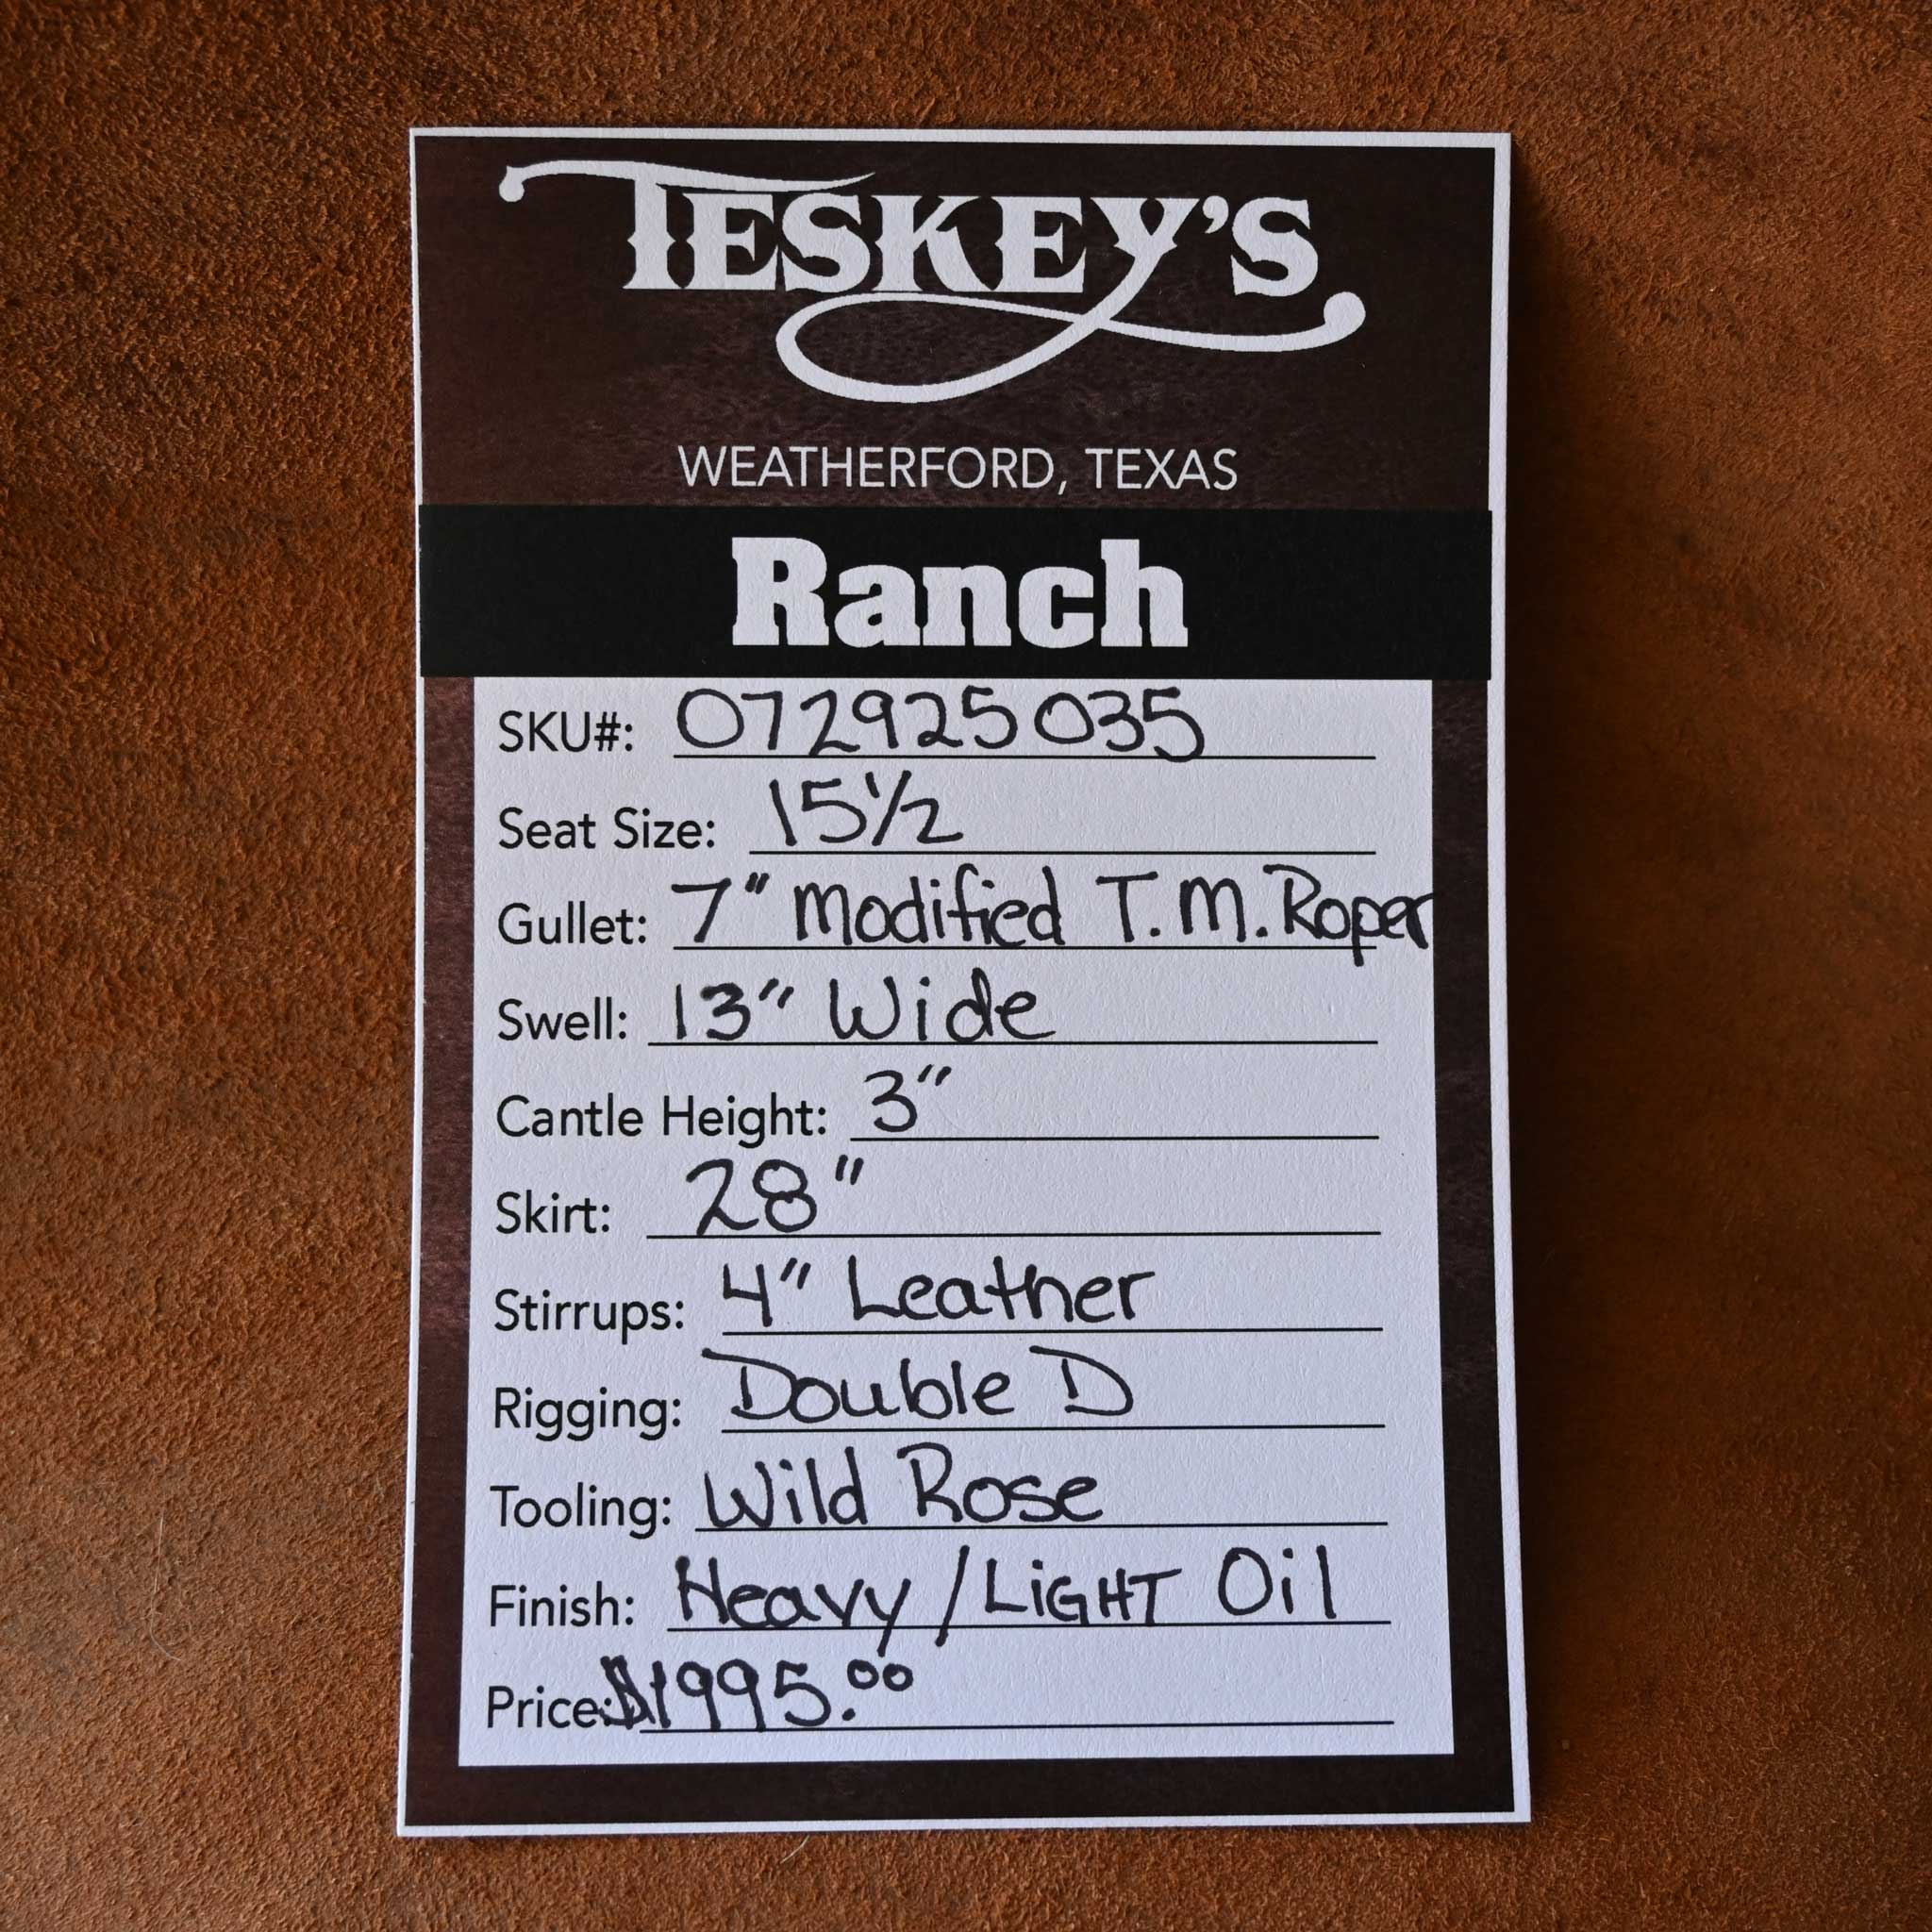 TESKEY'S
WEATHERFORD, TEXAS
Ranch
SKU#: 072925035
Seat Size: 15½
Gullet: 7" Modified T.M. Roper
Swell: 13" Wide
Cantle Height: 3"
Skirt: 28"
Stirrups: 4" Leather
Rigging: Double D
Tooling: Wild Rose
Finish: Heavy / LiGHT Oil
Price: $1995.00